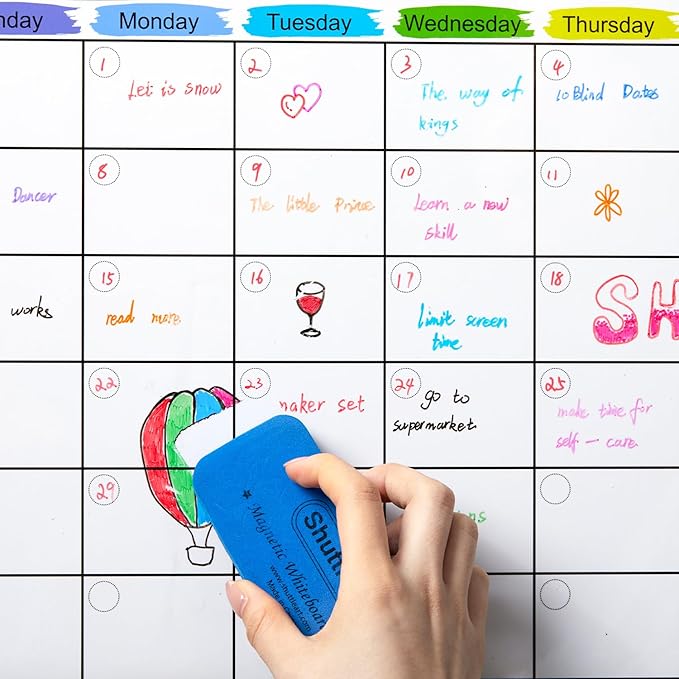 nday Monday Tuesday Wednesday Thursday
1 2 3 4
Let is snow
The way of
kings
10 Blind Dates
8 9 10 11
Dancer
The little Prince
Learn a new
skill
15 16 17 18
works
read more
limit screen
time
SH
22 23 24 25
maker set
go to
supermarket
make time for
self - care
29
ns
Shutt
Magnetic Whiteboard
www.shuttleart.com
Made in